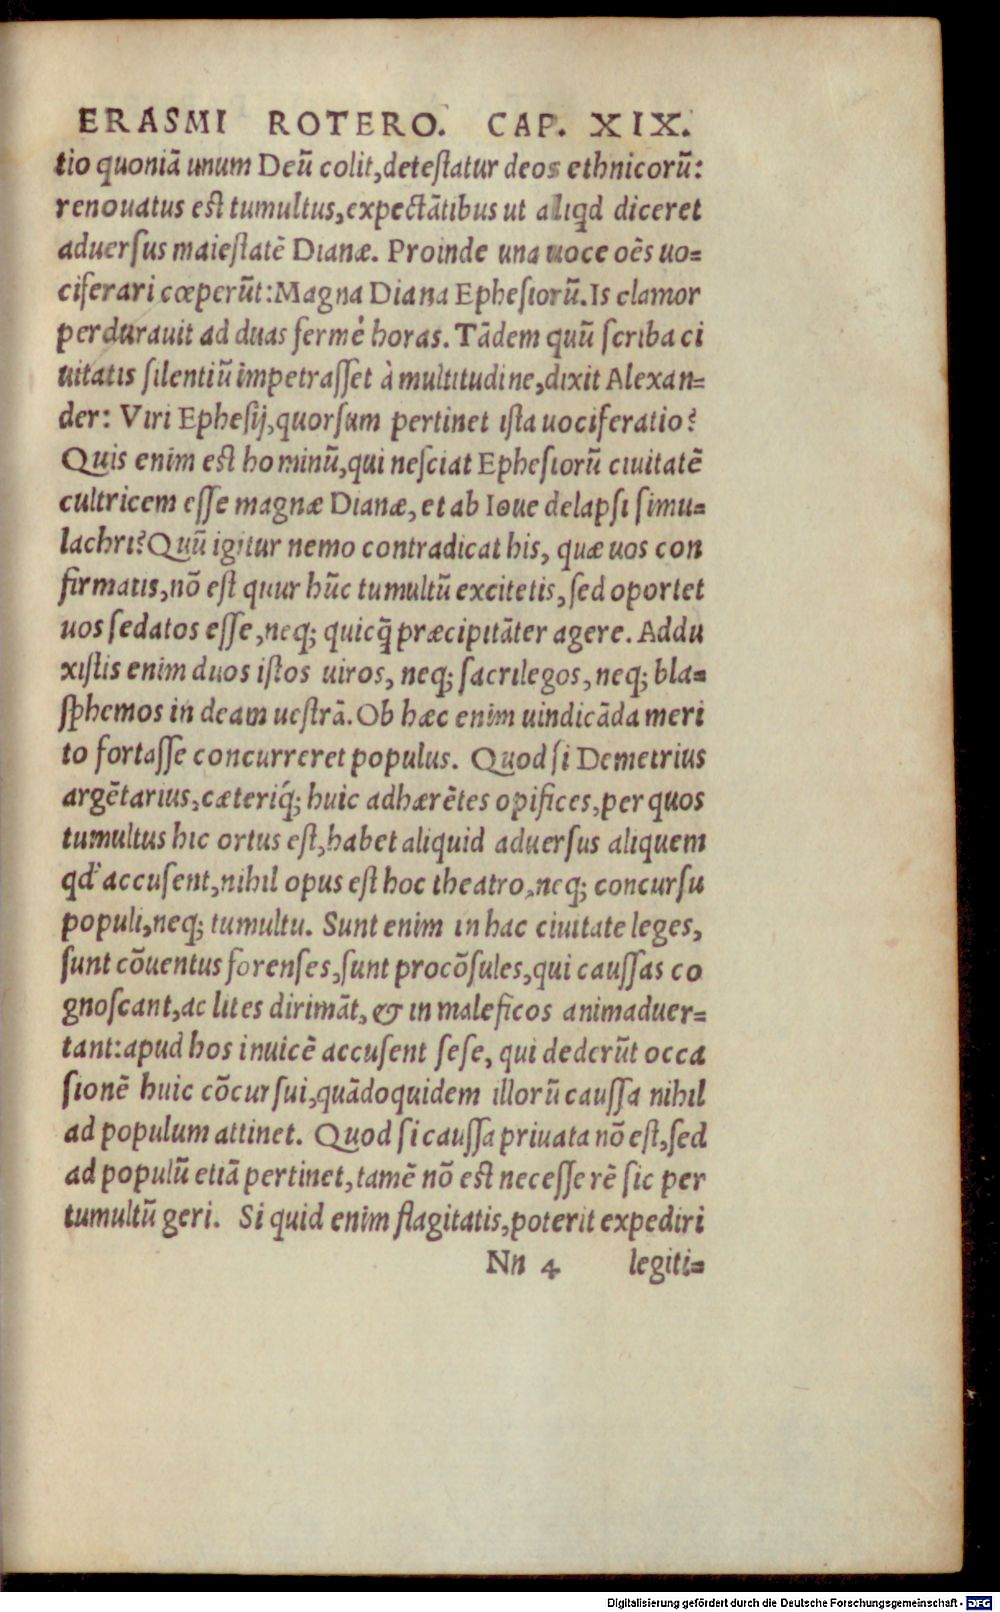 ERASMI ROTERO. CAP. XIX.
tio quoniā unum Deū colit,deteſtatur deos ethnicorū:
renouatus eſt tumultus,expectātibus ut aliqd diceret
aduerſus maieſtatē Dianæ. Proinde una uoce oēs uo=
ciferari cœperūt:Magna Diana Epheſiorū.Is clamor
perdurauit ad duas fermè horas. Tādem quū ſcriba ci
uitatis ſilentiū impetraſſet à multitudine,dixit Alexan=
der: Viri Epheſij,quorſum pertinet iſta uociferatio?
Quis enim eſt hominū,qui neſciat Epheſiorū ciuitatē
cultricem eſſe magnæ Dianæ, et ab Ioue delapſi ſimu=
lachri?Quū igitur nemo contradicat his, quæ uos con
firmatis,nō eſt quur hūc tumultū excitetis, ſed oportet
uos ſedatos eſſe,neq; quicq̄ præcipitāter agere. Addu
xiſtis enim duos iſtos uiros, neq; ſacrilegos, neq; bla=
ſphemos in deam ueſtrā. Ob hæc enim uindicāda meri
to fortaſſe concurreret populus. Quod ſi Demetrius
argētarius,cæteriq́; huic adhærētes opifices,per quos
tumultus hic ortus eſt,habet aliquid aduerſus aliquem
qd' accuſent,nihil opus eſt hoc theatro,neq; concurſu
populi,neq; tumultu. Sunt enim in hac ciuitate leges,
ſunt cōuentus forenſes,ſunt procōſules,qui cauſſas co
gnoſcant,ac lites dirimāt, & in maleficos animaduer=
tant:apud hos inuicē accuſent ſeſe, qui dederūt occa
ſionē huic cōcurſui,quādoquidem illorū cauſſa nihil
ad populum attinet. Quod ſi cauſſa priuata nō eſt,ſed
ad populū etiā pertinet,tamē nō eſt neceſſe rē ſic per
tumultū geri. Si quid enim flagitatis,poterit expediri
Nn 4 legiti=
Digitalisierung gefördert durch die Deutsche Forschungsgemeinschaft - DFG